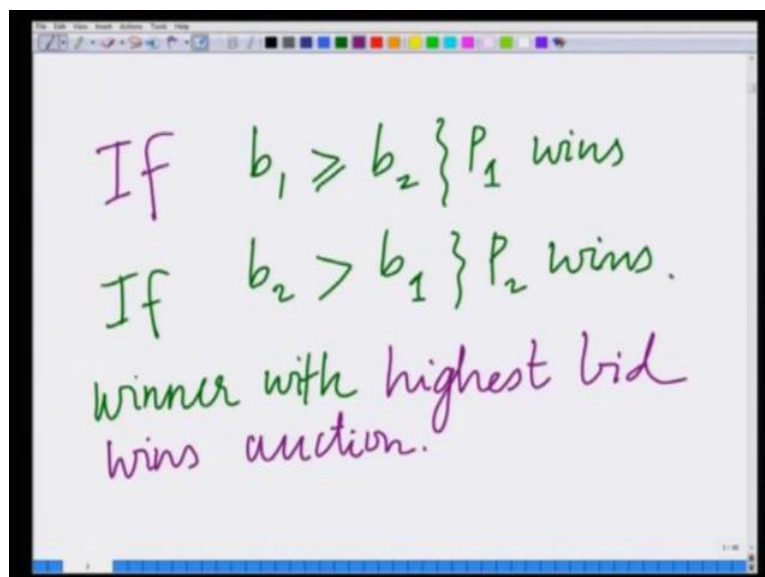 File Edit View Insert Actions Tools Help
If b₁ ⩾ b₂ } P₁ wins
If b₂ > b₁ } P₂ wins.
winner with highest bid
wins auction.